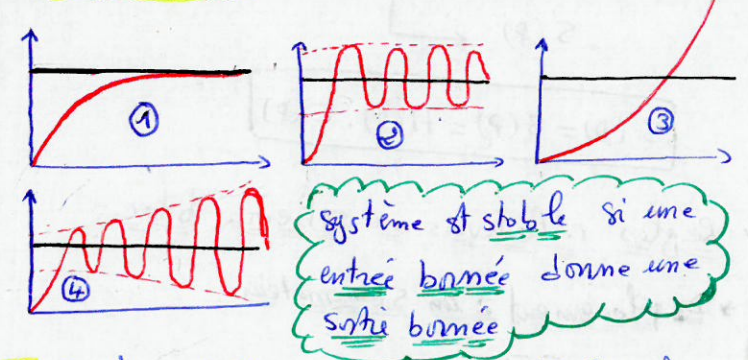 1
2
3
4
système st stable si une
entrée bornée donne une
sortie bornée